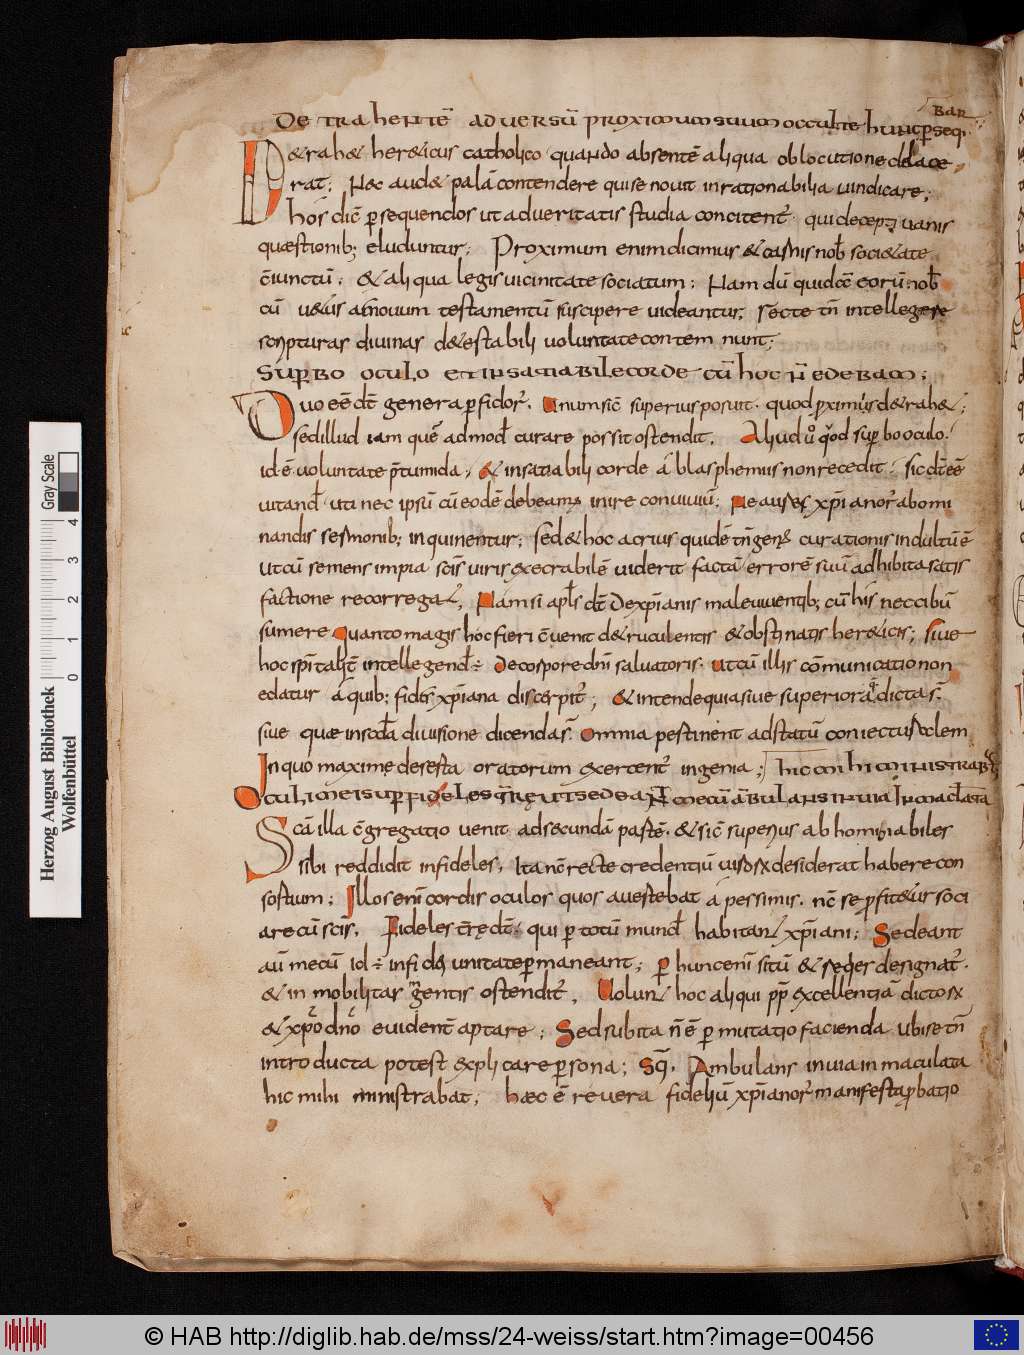 BAR
DETRAHENTĒ ADVERSŪ PROXIMUM SUUM OCCULTE HUNC PSEQ
Detrahet hereticus catholico quando absentē aliqua oblocutione delace
rat; Nec audet palā contendere qui se novit inrationabilia vindicare;
hos dic̄ psequendos ut ad veritatis studia concitent̄ qui decepti vanis
quæstionib; eluduntur; Proximum enim dicimus & carnis nob̄ societate
c̄iunctū; & aliqua legis vicinitate sociatum; Nam dū quidā eorū nob̄
cū vetus ac novum testamentū suscipere videantur; recte tn̄ intellegere
scripturas divinas detestabili voluntate contemnunt;
SUPERBO OCULO ET INSATIABILE CORDE CŪ HOC N̄ EDEBAM;
Duo eē dc̄ genera pfidor. Unum sic̄ superius posuit. quod pximis detrahet;
sed illud iam quē admod̄ curare possit ostendit. Aliud ů quod supbo oculo.
id ē voluntate p̄tumida; & insatiabili corde a blasphemiis non recedit; sic dc̄ eē
vitand̄ uti nec ipsū cū eodē debeam inire conviviū; Ne aures xp̄ianor abomi
nandis sermonib; inquinentur; sed & hoc acrius quidē tn̄ gen curationis indultū ē
ut cū se mens impia sc̄is viris execrabilē viderit factā errorē suū adhibita satis
factione recorrigat, Nam si apl̄s dc̄ de xp̄ianis male viventib; cū his nec cibū
sumere Quanto magis hoc fieri c̄venit de truculentis & obstinatis hereticis; sive
hoc sp̄italit̄ intellegend̄ ÷ de corpore dn̄i salvatoris. ut cū illis cōmunicatio non
edatur a quib; fidis xp̄iana discerpit̄; & intende quia sive superiora dicta s̄.
sive quæ in scd̄a divisione dicenda s̄. omnia pertinent ad statū coniectu reclem
In quo maxime deserta oratorum exercent̄ ingenia; HIC MIHI MINISTRABT
OCULI MEI SUPER FIDELES TERRE UT SEDEANT MECŪ ĀBULANS IN VIA INMACULATA
Scā illa c̄gregatio venit ad secundā partē. & sic̄ superius abhominabiles
sibi reddidit infideles, Ita nc̄ recte credentiū visos desiderat habere con
sortium; Illos enī cordis oculos quos avertebat a pessimis. nc̄ se pfitetur soci
are cū sc̄is. Fideles t̄rę dc̄. qui p totū mund̄ habitant xp̄iani; Sedeant
aū mecū id ÷ in fidei unitate pmaneant; p hunc enī sitū & requies designat̄.
& inmobilitas mentis ostendit̄. Volunt hoc aliqui pp̄ excellentiā dictor
& xp̄o dn̄o evident̄ aptare; Sed subita n̄ ē pmutatio facienda ubi se tn̄
introducta potest explicare psona; Sq̄. Ambulans in via inmaculata
hic mihi ministrabat; hæc ē revera fideliū xp̄ianor manifesta pbatio
Herzog August Bibliothek
Wolfenbüttel
0 1 2 3 4
Gray Scale
© HAB http://diglib.hab.de/mss/24-weiss/start.htm?image=00456